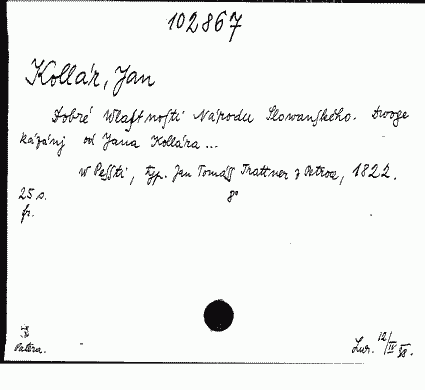 102867
Kollár, Jan
Dobré Wlastnosti Národu Slowanského. Dwoge
kázánj od Jana Kollára...
w Pessti, typ. Jan Tomáss Trattner z Petroa, 1822.
25 s. 8°
fr.
Patera. Lur. 12/IV 28.